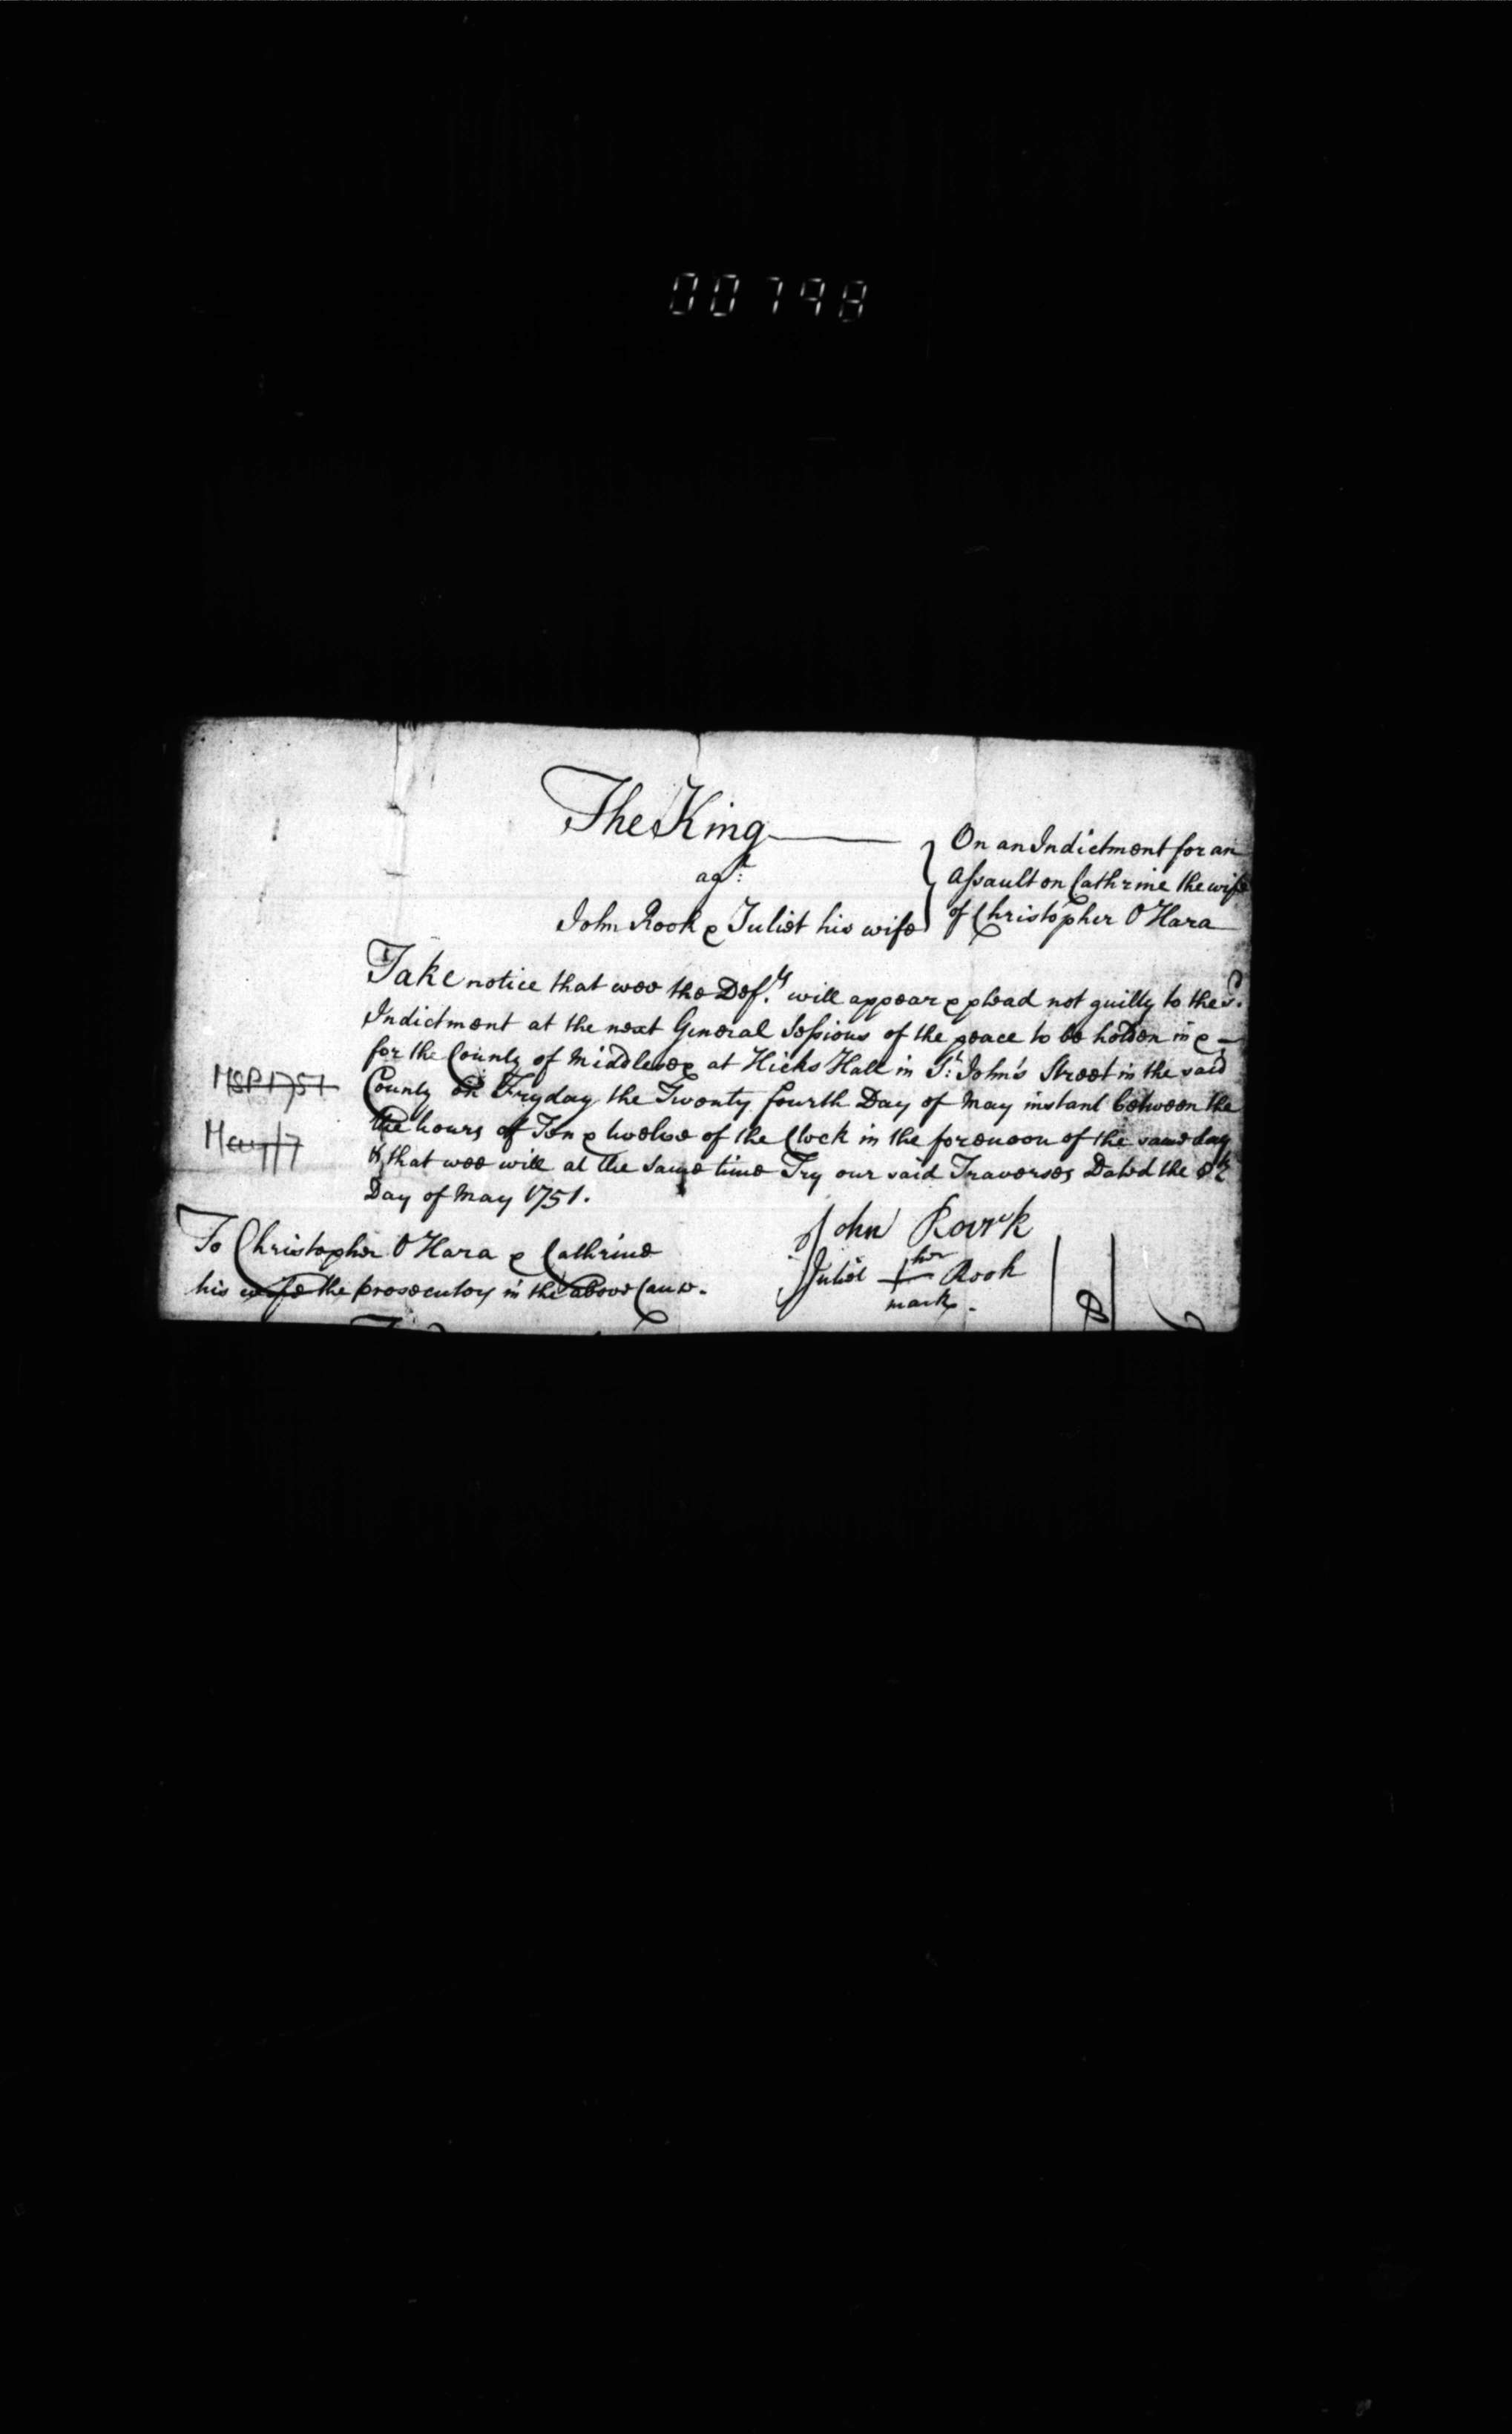 00798
The King
agt.
John Rook & Juliet his wife
On an Indictment for an
Assault on Cathrine the wife
of Christopher O Hara
Take notice that wee the Defts. will appear & plead not guilty to the sd.
Indictment at the next General Sessions of the peace to be holden in &
for the County of Middlesex at Hicks Hall in St. John's Street in the said
MSP 1751
County on Fryday the Twenty fourth Day of May instant between the
the hours of Ten & twelve of the Clock in the forenoon of the same day
May/7
& that wee will at the same time Try our said Traverses Dated the
Day of May 1751.
To Christopher O Hara & Cathrine
his wife the prosecutors in the above Cause.
John Rourk
Juliet her Rook
mark.